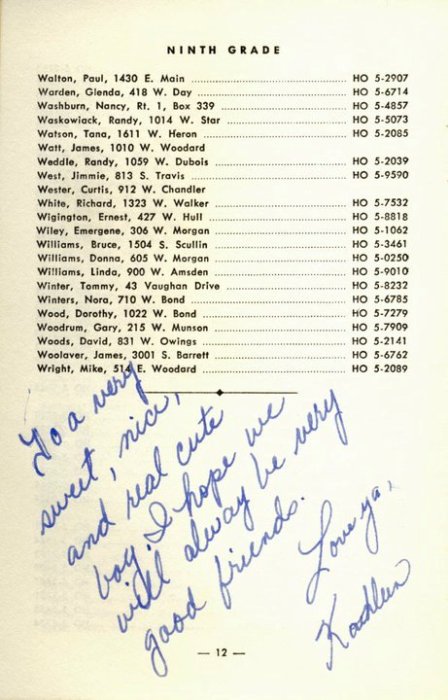 NINTH GRADE
Walton, Paul, 1430 E. Main ........ HO 5-2907
Warden, Glenda, 418 W. Day ........ HO 5-6714
Washburn, Nancy, Rt. 1, Box 339 ........ HO 5-4857
Waskowiack, Randy, 1014 W. Star ........ HO 5-5073
Watson, Tana, 1611 W. Heron ........ HO 5-2085
Watt, James, 1010 W. Woodard
Weddle, Randy, 1059 W. Dubois ........ HO 5-2039
West, Jimmie, 813 S. Travis ........ HO 5-9590
Wester, Curtis, 912 W. Chandler
White, Richard, 1323 W. Walker ........ HO 5-7532
Wigington, Ernest, 427 W. Hull ........ HO 5-8818
Wiley, Emergene, 306 W. Morgan ........ HO 5-1062
Williams, Bruce, 1504 S. Scullin ........ HO 5-3461
Williams, Donna, 605 W. Morgan ........ HO 5-0250
Williams, Linda, 900 W. Amsden ........ HO 5-9010
Winter, Tommy, 43 Vaughan Drive ........ HO 5-8232
Winters, Nora, 710 W. Bond ........ HO 5-6785
Wood, Dorothy, 1022 W. Bond ........ HO 5-7279
Woodrum, Gary, 215 W. Munson ........ HO 5-7909
Woods, David, 831 W. Owings ........ HO 5-2141
Woolaver, James, 3001 S. Barrett ........ HO 5-6762
Wright, Mike, 514 E. Woodard ........ HO 5-2089
To a very
sweet, nice,
and real cute
boy. I hope we
will alway be very
good friends.
Love ya,
Kathleen
— 12 —